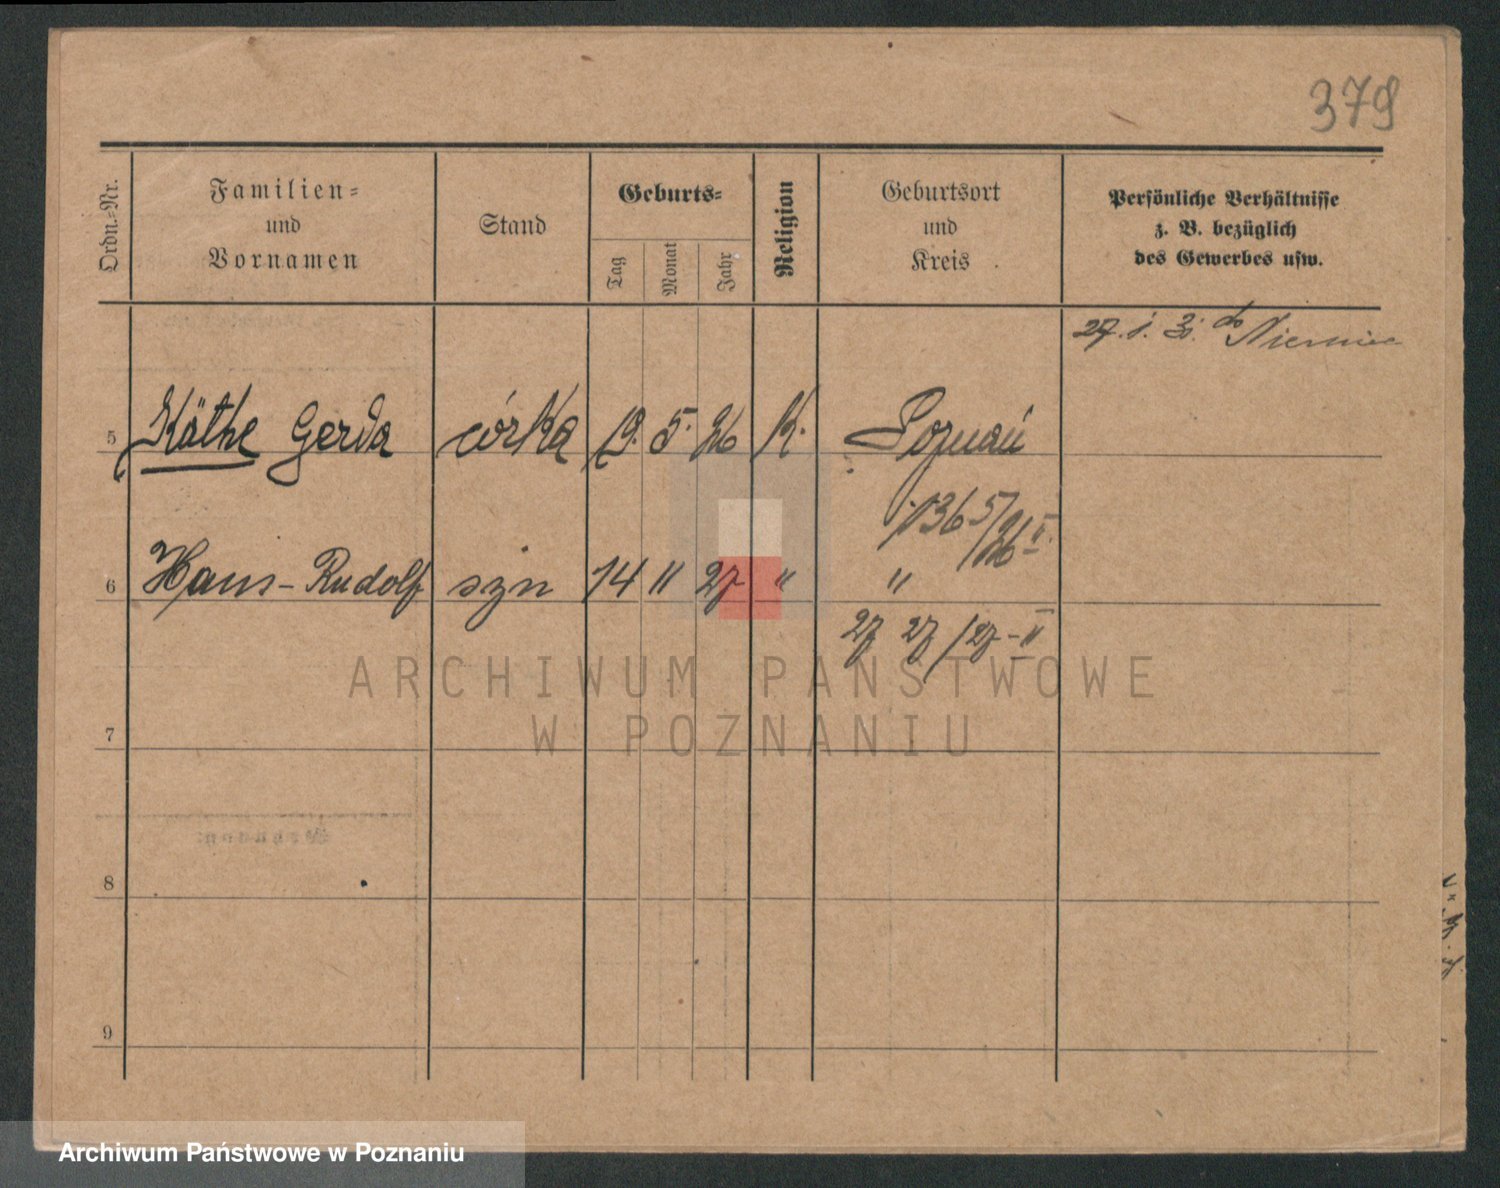 379
Ordn.=Nr.
Familien=
und
Vornamen
Stand
Geburts=
Tag
Monat
Jahr
Religion
Geburtsort
und
Kreis
Persönliche Verhältnisse
z. B. bezüglich
des Gewerbes usw.
27. 1. 3. do Niemiec
5 Käthe Gerda córka 19. 5. 26 K. Poznań
1365/26 II
6 Hans-Rudolf syn 14 " 27 " "
27 27/27-II
7
8
9
ARCHIWUM PAŃSTWOWE
W POZNANIU
Archiwum Państwowe w Poznaniu